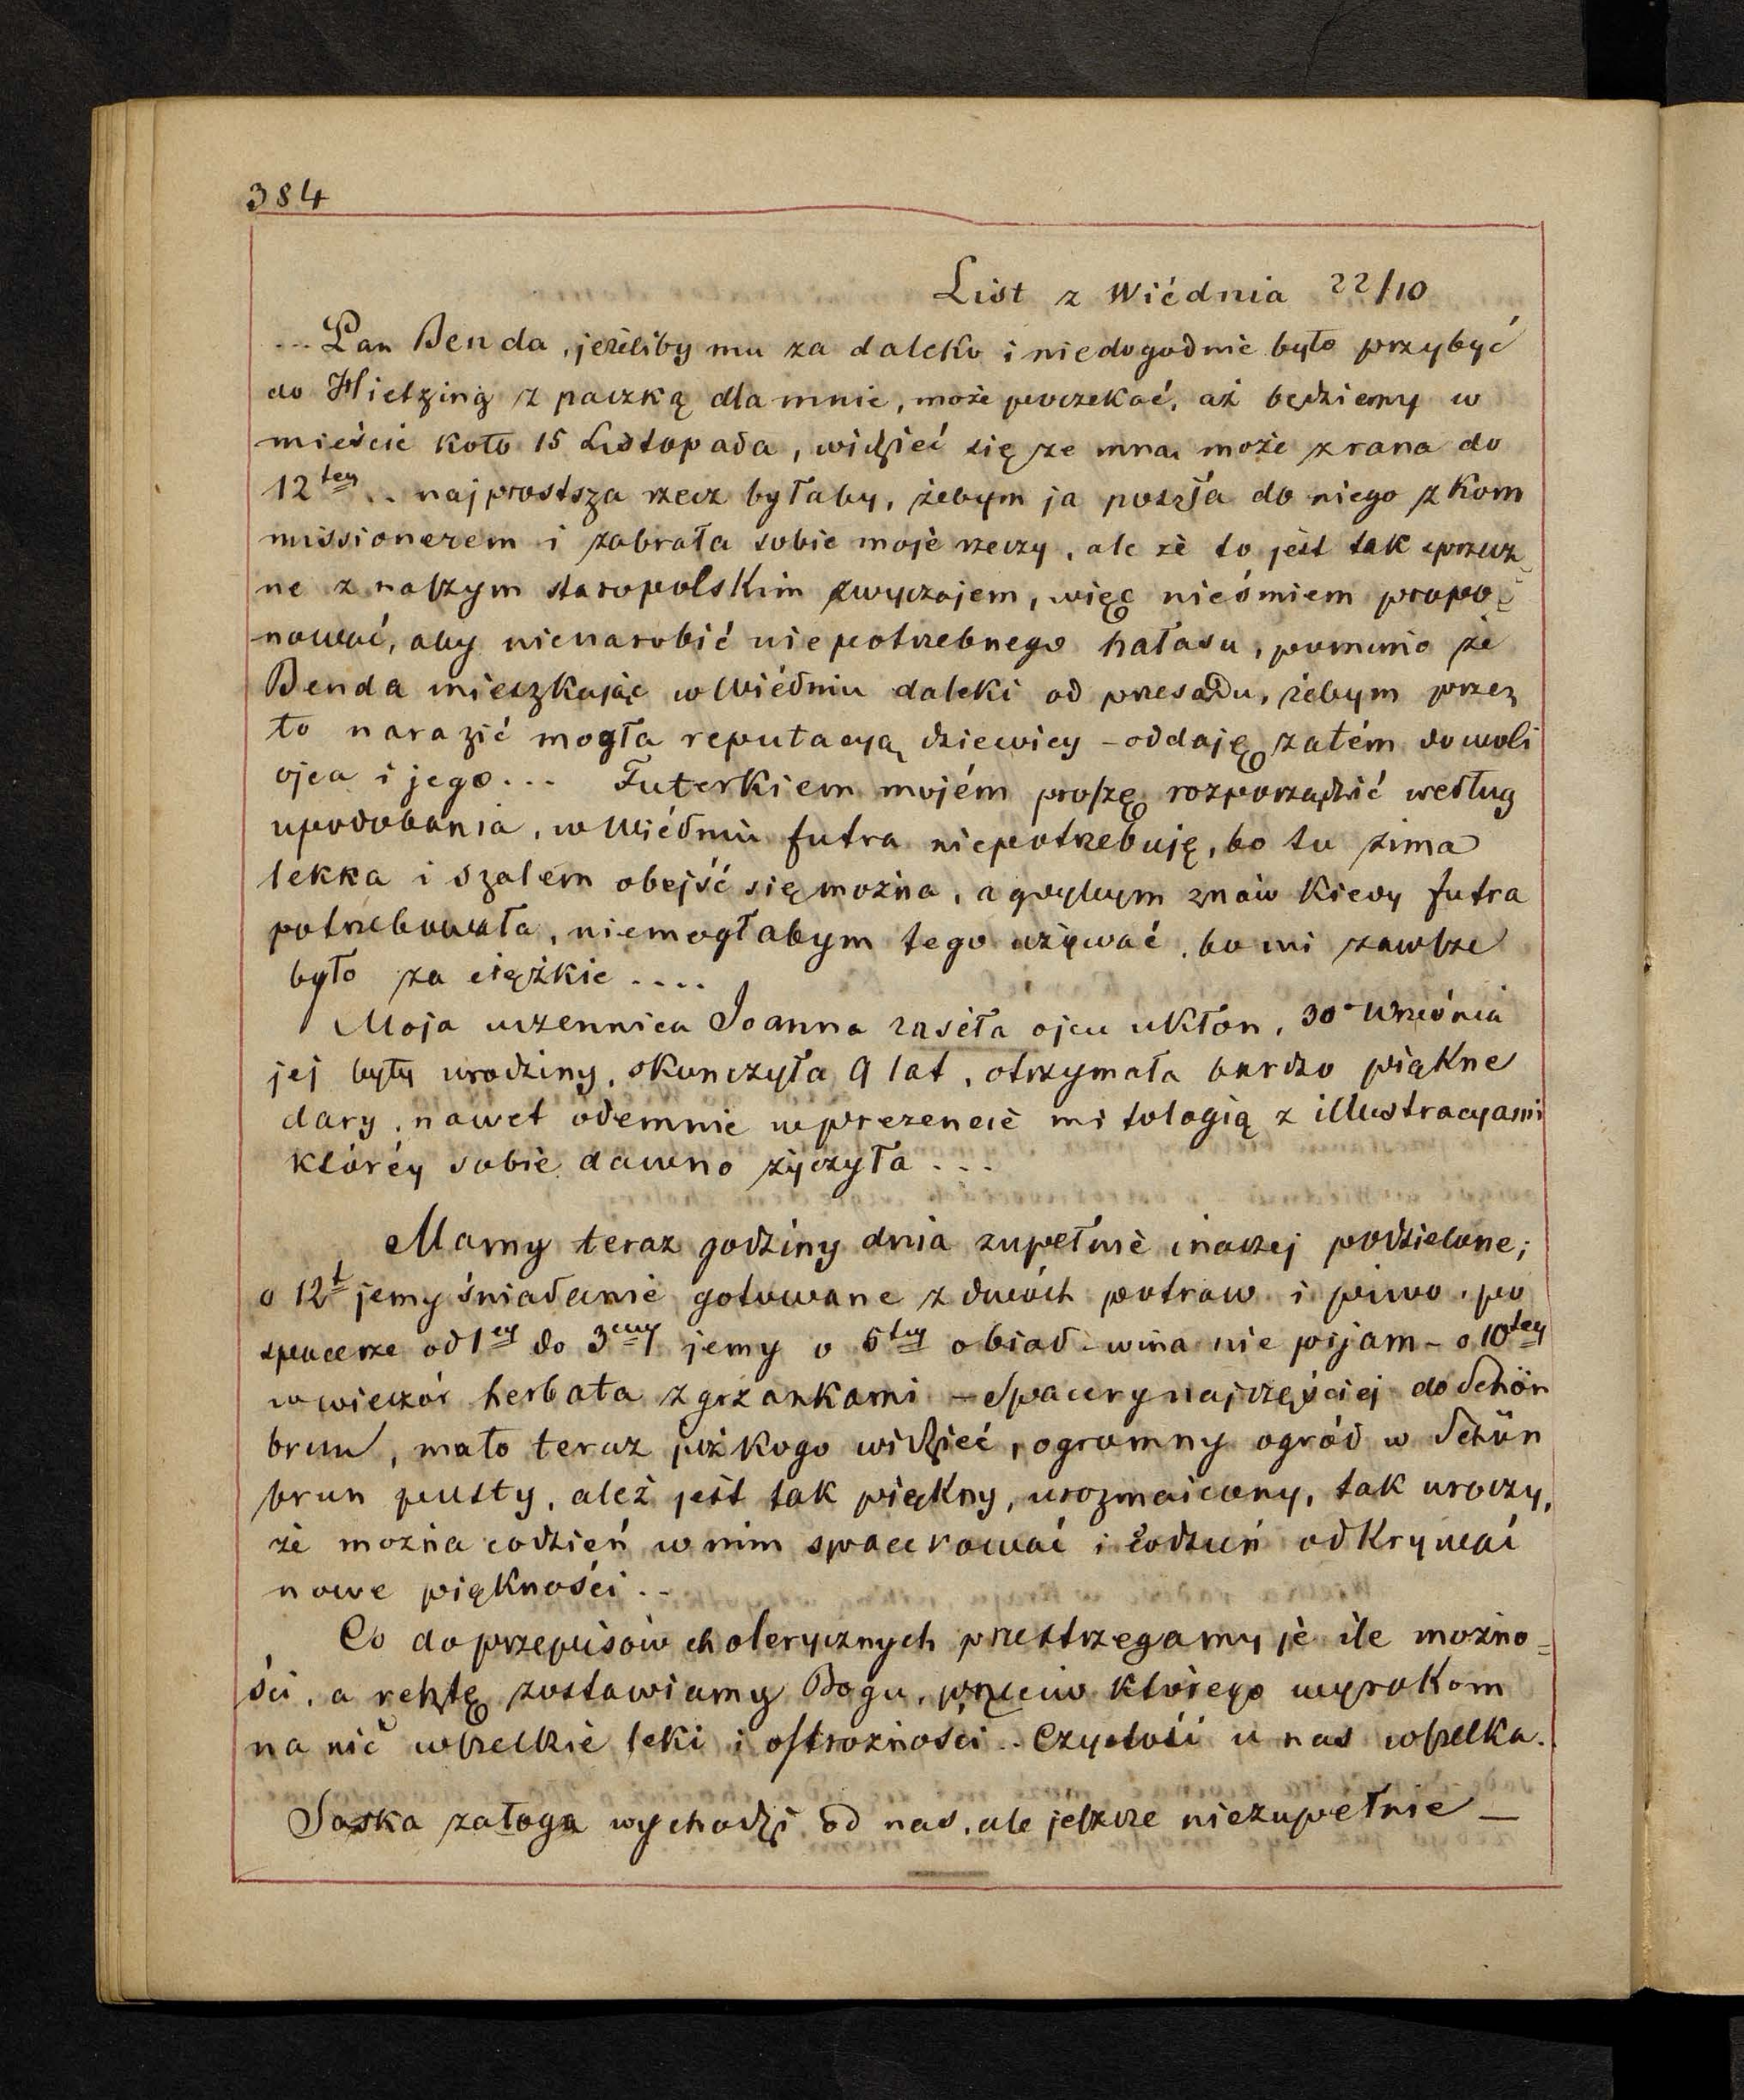 384
List z Wiédnia 22/10
... Pan Benda, jeżeliby mu za daleko i niedogodnie było przybyć
do Hietzing z paczką dla mnie, może poczekać, aż będziemy w
mieście koło 15 Listopada, widzieć się ze mną może z rana do
12tey .. najprostsza rzecz byłaby, żebym ja poszła do niego z kom
missionerem i zabrała sobie moje rzeczy, ale że to jest tak sprzecz
ne z naszym staropolskim zwyczajem, więc nieśmiem propo
nować, aby nienarobić niepotrzebnego hałasu, pomimo że
Benda mieszkając w Wiédniu daleki od przesądu, żebym przez
to narazić mogła reputacyą dziewicy – oddaję zatém do woli
ojca i jego... Futerkiem mojém proszę rozporządzić według
upodobania, w Wiédniu futra niepotrzebuję, bo tu zima
lekka i szalem obejść się można, a gdybym znów kiedy futra
potrzebowała, niemogłabym tego używać, bo mi zawsze
było za ciężkie ....
Moja uczennica Joanna zaséła ojcu ukłon, 30º Września
jej były urodziny, skończyła 9 lat, otrzymała bardzo piękne
dary, nawet odemnie w prezencie mitologią z illustracyami
któréy sobie dawno życzyła ...
Mamy teraz godziny dnia zupełnie inaczej podzielone;
o 12t jemy śniadanie gotowane z dwóch potraw i piwo, po
spacerze od 1ey do 3ciey jemy o 5tey obiad – wina nie pijam – o 10tey
w wieczór herbata z grzankami – Spacery najczęściej do Schön
brun, mało teraz już kogo widzieć, ogromny ogród w Schön
brun pusty, aleź jest tak piękny, urozmaicony, tak uroczy,
że można codzień w nim spacerować i codzień odkrywać
nowe piękności..
Co do przepisów cholerycznych przestrzegamy je ile możno=
ści, a resztę zostawiamy Bogu, przeciw którego wyrokom
na nic wszelkie leki i ostrożności .. Czystość u nas wszelka.
Saska załoga wychodzi od nas, ale jeszcze niezupełnie —